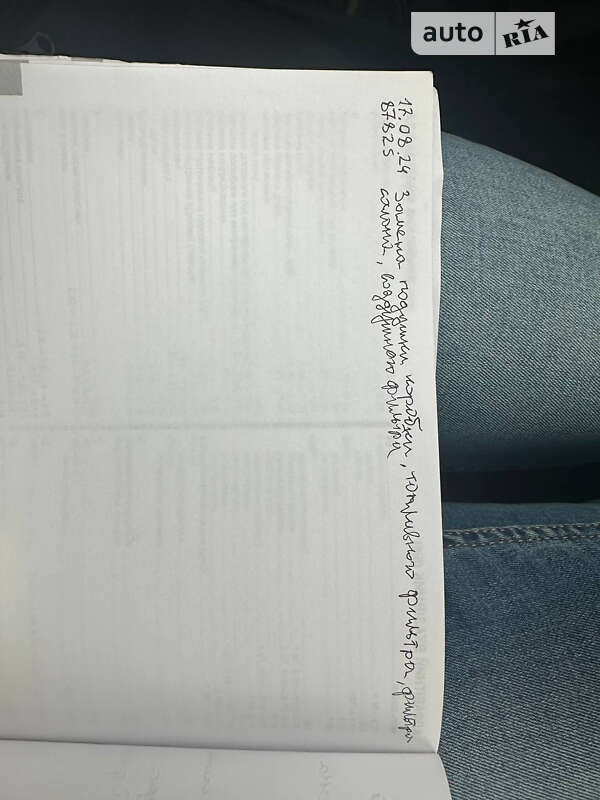 auto RIA
17.08.24 Замена подушки коробки, топливного фильтра, фильтра
87825 салона, воздушного фильтра